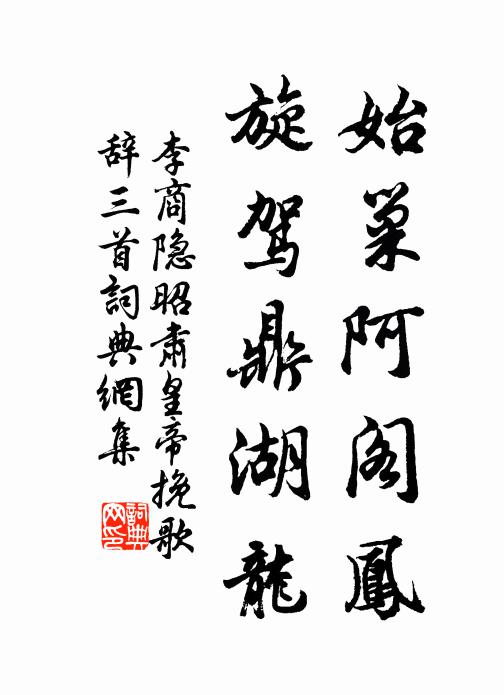 始巢阿阁鳳
旋驾鼎湖龍
李商隐昭肃皇帝挽歌
辞三首詞典網集
詞典
网印